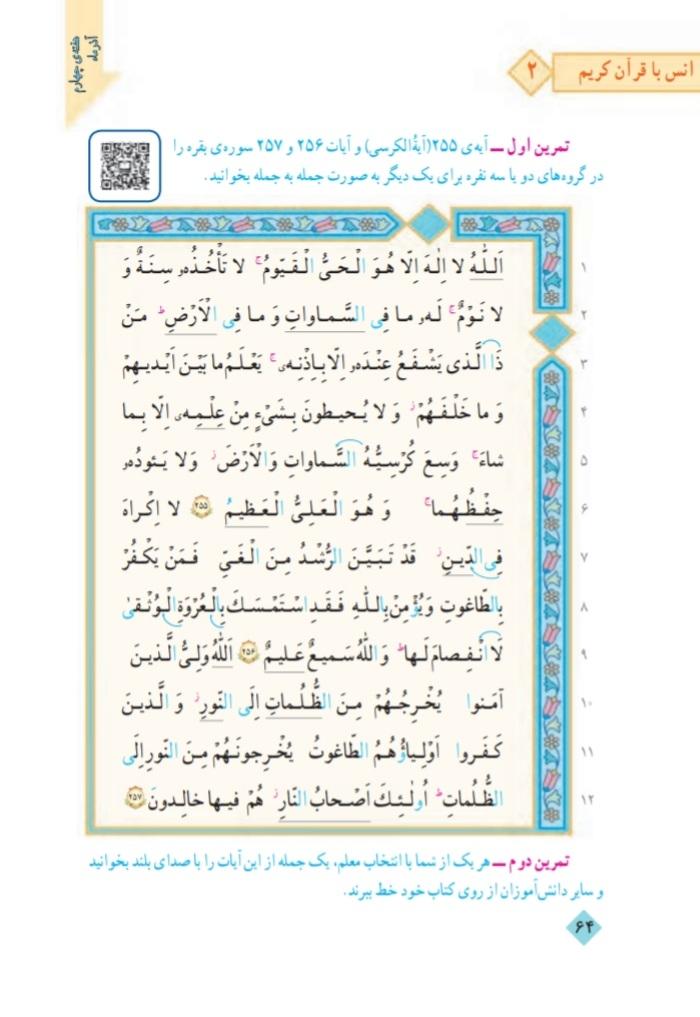 هفته‌ی چهارم
آذر ماه
انس با قرآن کریم
۲
تمرین اول ــ آیه‌ی ۲۵۵(آیةُالکرسی) و آیات ۲۵۶ و ۲۵۷ سوره‌ی بقره را
در گروه‌های دو یا سه نفره برای یک دیگر به صورت جمله به جمله بخوانید.
۱ اَللّٰهُ لا اِلٰهَ اِلّا هُوَ الْحَیُّ الْقَیّومُ ۚ لا تَأْخُذُهو سِنَةٌ وَ
۲ لا نَوْمٌ ۚ لَهو ما فِی السَّماواتِ وَ ما فِی الْاَرْضِ ۗ مَنْ
۳ ذَا الَّذی یَشْفَعُ عِنْدَهو اِلّا بِاِذْنِهی ۚ یَعْلَمُ ما بَیْنَ اَیْدیهِمْ
۴ وَ ما خَلْفَهُمْ ۖ وَ لا یُحیطونَ بِشَیْءٍ مِنْ عِلْمِهی اِلّا بِما
۵ شاءَ ۚ وَسِعَ کُرْسِیُّهُ السَّماواتِ وَالْاَرْضَ ۖ وَلا یَئودُهو
۶ حِفْظُهُما ۚ وَ هُوَ الْعَلِیُّ الْعَظیمُ ۲۵۵ لا اِکْراهَ
۷ فِی الدّینِ ۖ قَدْ تَبَیَّنَ الرُّشْدُ مِنَ الْغَیِّ فَمَنْ یَکْفُرْ
۸ بِالطّاغوتِ وَیُؤْمِنْ بِاللّٰهِ فَقَدِ اسْتَمْسَکَ بِالْعُرْوَةِ الْوُثْقیٰ
۹ لَا انْفِصامَ لَها ۗ وَاللّٰهُ سَمیعٌ عَلیمٌ ۲۵۶ اَللّٰهُ وَلِیُّ الَّذینَ
۱۰ آمَنوا یُخْرِجُهُمْ مِنَ الظُّلُماتِ اِلَی النّورِ ۖ وَ الَّذینَ
۱۱ کَفَروا اَوْلِیاؤُهُمُ الطّاغوتُ یُخْرِجونَهُمْ مِنَ النّورِ اِلَی
۱۲ الظُّلُماتِ ۗ اُولٰئِکَ اَصْحابُ النّارِ ۖ هُمْ فیها خالِدونَ ۲۵۷
تمرین دوم ــ هر یک از شما با انتخاب معلم، یک جمله از این آیات را با صدای بلند بخوانید
و سایر دانش‌آموزان از روی کتاب خود خط ببرند.
۶۴